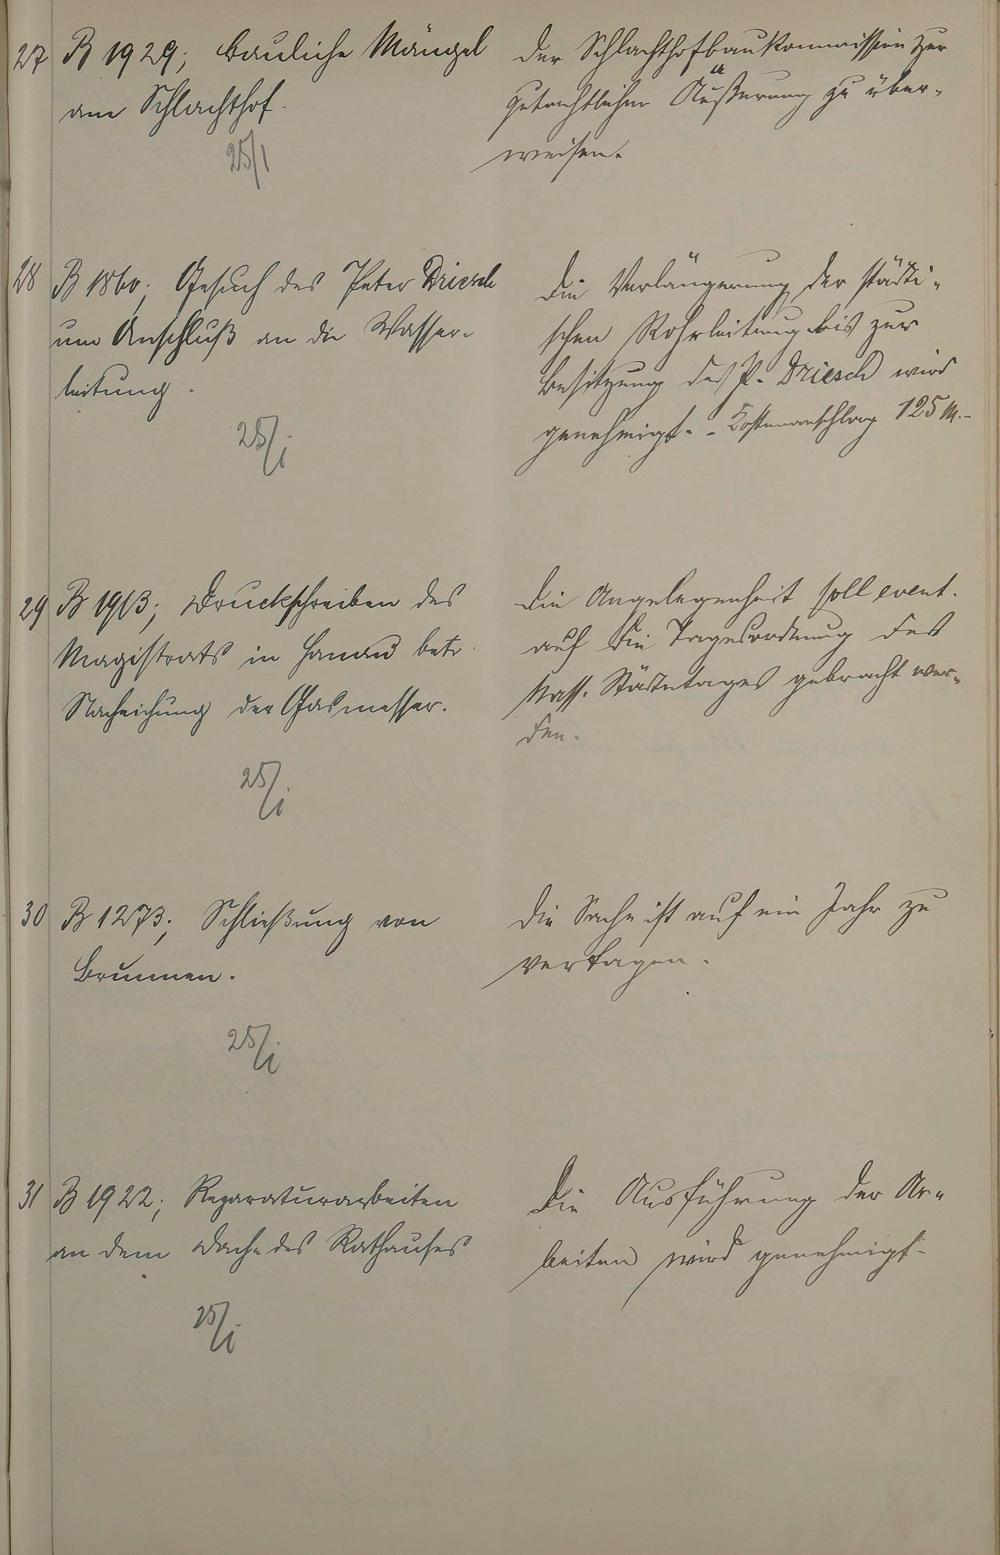 27 B 1929; bauliche Mängel
am Schlachthof.
25/1
der Schlachthofbaukommission zur
gutachtlichen Äußerung zu über-
weisen.
28 B 1860; Gesuch des Peter Driesch
um Anschluß an die Wasser-
leitung.
25/i
Die Verlängerung der städti-
schen Rohrleitung bis zur
Besitzung des P. Driesch wird
genehmigt. - Kostenanschlag 125 M.-
29 B 1913; Druckschreiben des
Magistrats in Hanau betr.
Nacheichung der Gasmesser.
25/i
Die Angelegenheit soll event.
auf die Tagesordnung des
Nass. Städtetages gebracht wer-
den.
30 B 1273; Schließung von
Brunnen.
25/i
Die Sache ist auf ein Jahr zu
vertagen.
31 B 1922; Reparaturarbeiten
an dem Dache des Rathauses
25/i
Die Ausführung der Ar-
beiten wird genehmigt.